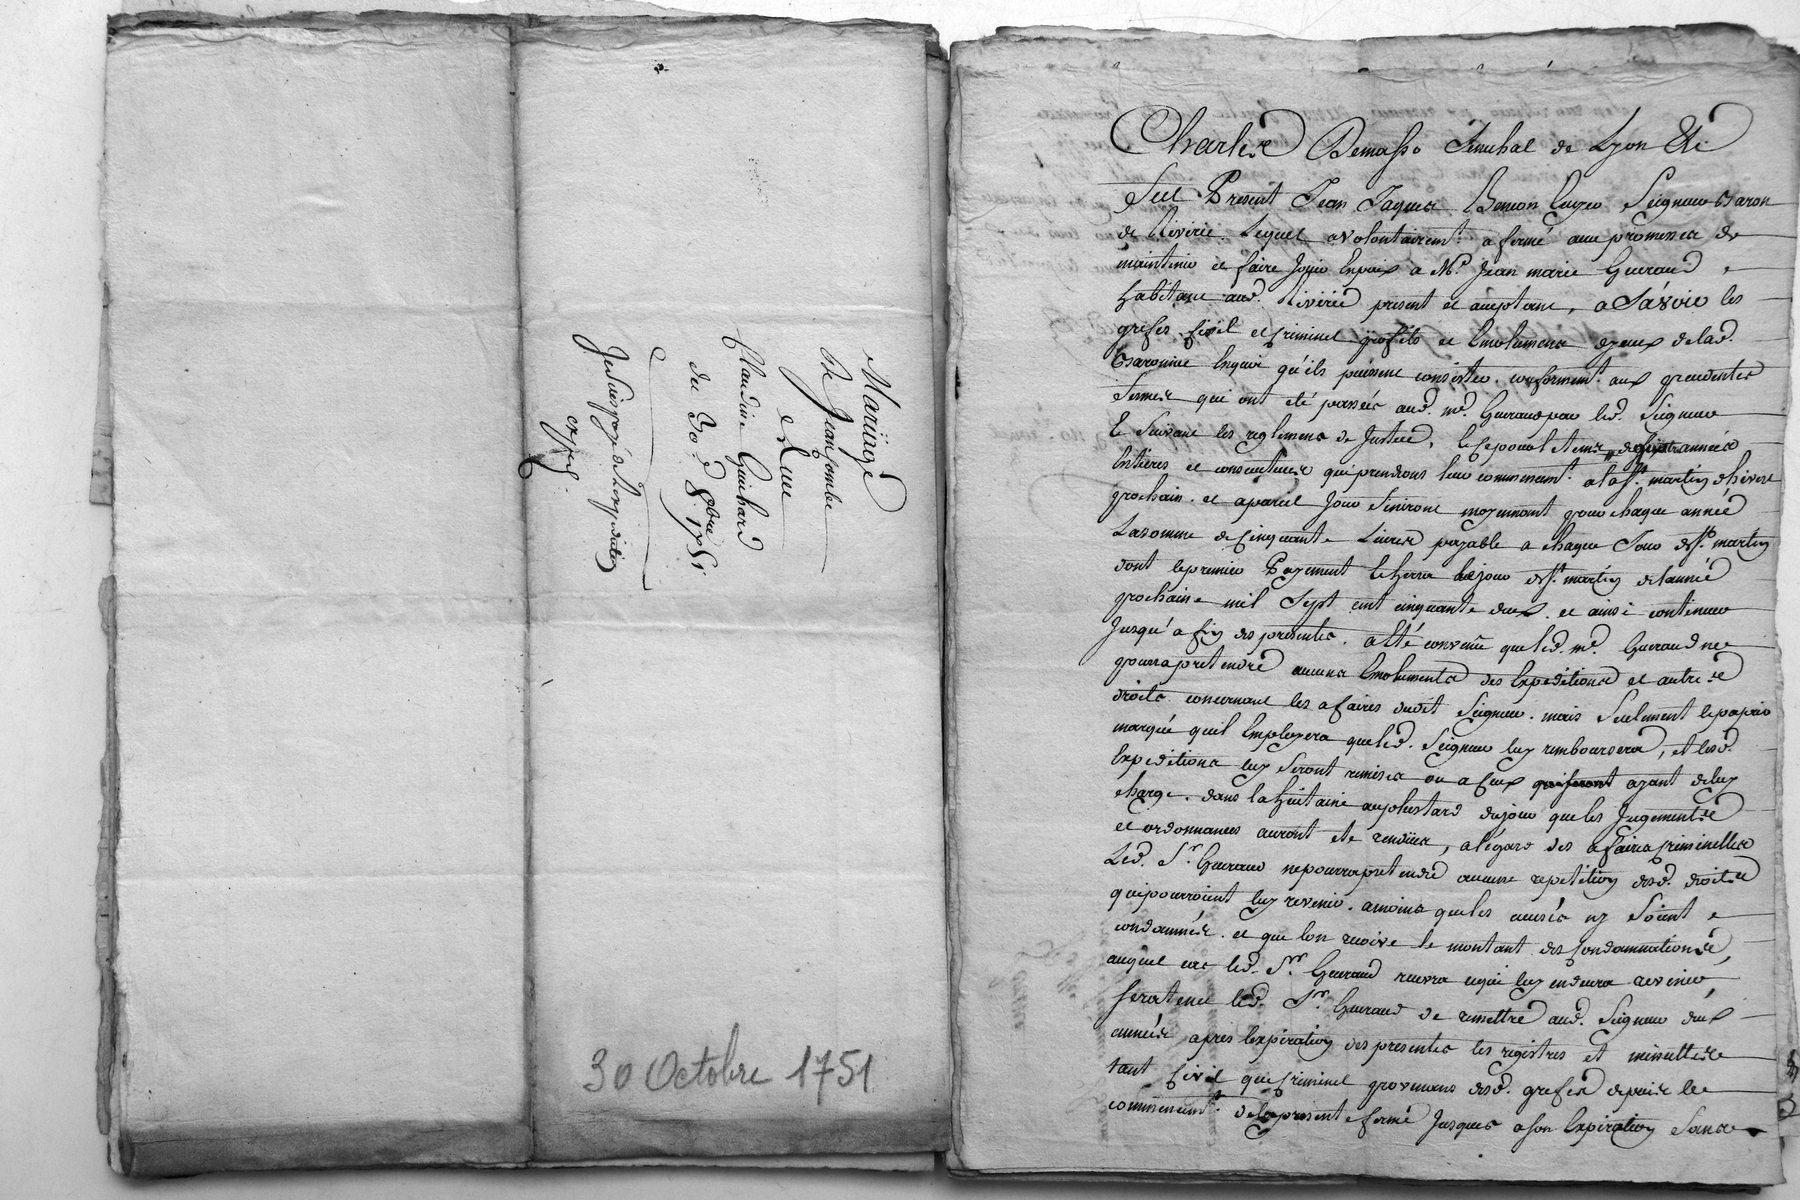 Mariage
de Jean Combe
et de
Claudine Guichard
du 30e 8bre 1751
Je suis payé
exped.
30 Octobre 1751
Charles Demasso Senechal de Lyon &c
Fut Present Jean Jaques Seigneur Baron
de Riverie. Lequel a volontairemt. afermé avec promesse de
maintenir et faire Jouir En paix a Me. Jean marie Gueraud
habitant aud. Riverie present et acceptant, a Savoir les
grefes civil et criminel profits et Emolumens dyceux de lad.
Baronnie En quoi qu'ils puissent consister conformemt. aux precedentes
fermes qui ont eté passées aud. me. Gueraud par led. Seigneur
Et suivant les reglemens de Justice, Et ce pour le tems de années
Entieres et consecutives qui prendront leur commencemt. a la st. martin d'hivert
prochain. et a pareil Jour finiront moyennant pour chaque année
La somme de Cinquante Livres payable a chaque Jour de st. martin
dont le premier Payement Echerra le jour de st. martin de lannée
prochaine mil Sept cent cinquante deux et ainsi continuer
Jusqu'a fin des presentes. a Eté convenu que led. me. Gueraud ne
pourra pretendre aucuns Emoluments des Expeditions et autres
droits concernant les afaires dudit Seigneur. mais Seulement le papier
marqué quil Employera que led. Seigneur luy remboursera, et lesd.
Expeditions luy Seront remises ou a Ceux qui seront ayant de luy
charge. dans la huitaine au plus tard du jour que les Jugements
et ordonnances auront eté rendües, a légard des afaires criminelles
Led. Sr. Gueraud ne pourra pretendre aucune repetition desd. droits
qui pourroient luy revenir. amoins que les accusés ny Soient
condamnés. et que lon reçoive le montant des Condamnations,
auquel cas led. Sr. Gueraud recevra ce qui luy en devra revenir,
Sera tenu led. Sr. Gueraud de remettre aud. Seigneur deux
années apres lexpiration des presentes les registres et minuttes
tant Civil que Criminel provenans desd. grefes depuis le
commencemt. de la presente ferme Jusques a son Expiration Sans